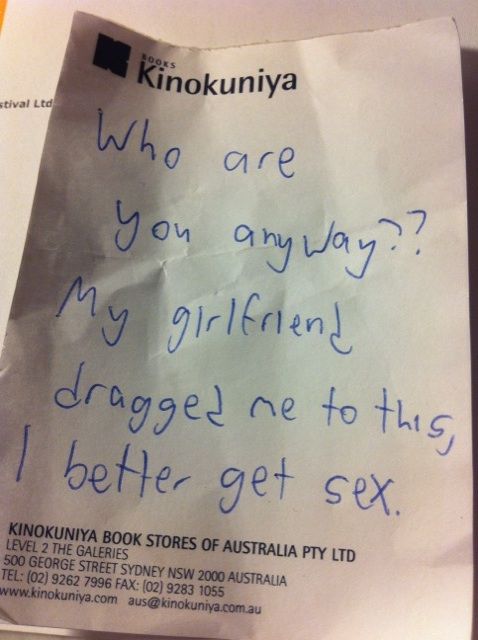 BOOKS
Kinokuniya
stival Ltd
Who are
you anyway??
My girlfriend
dragged me to this,
I better get sex.
KINOKUNIYA BOOK STORES OF AUSTRALIA PTY LTD
LEVEL 2 THE GALERIES
500 GEORGE STREET SYDNEY NSW 2000 AUSTRALIA
TEL: (02) 9262 7996 FAX: (02) 9283 1055
www.kinokuniya.com aus@kinokuniya.com.au